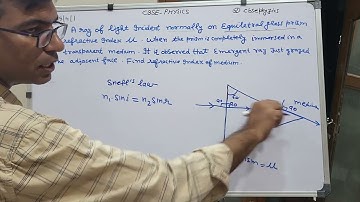 CBSE-PHYSICS
A ray of light Incident normally on Equilateral glass prism
refractive Index μ. When the prism is completely immersed in a
transparent medium. It is observed that Emergent ray Just grazed
adjacent face. Find refractive Index of medium.
Snell's law-
n₁ sin i = n₂ sin r
60
90
90
media
= μ